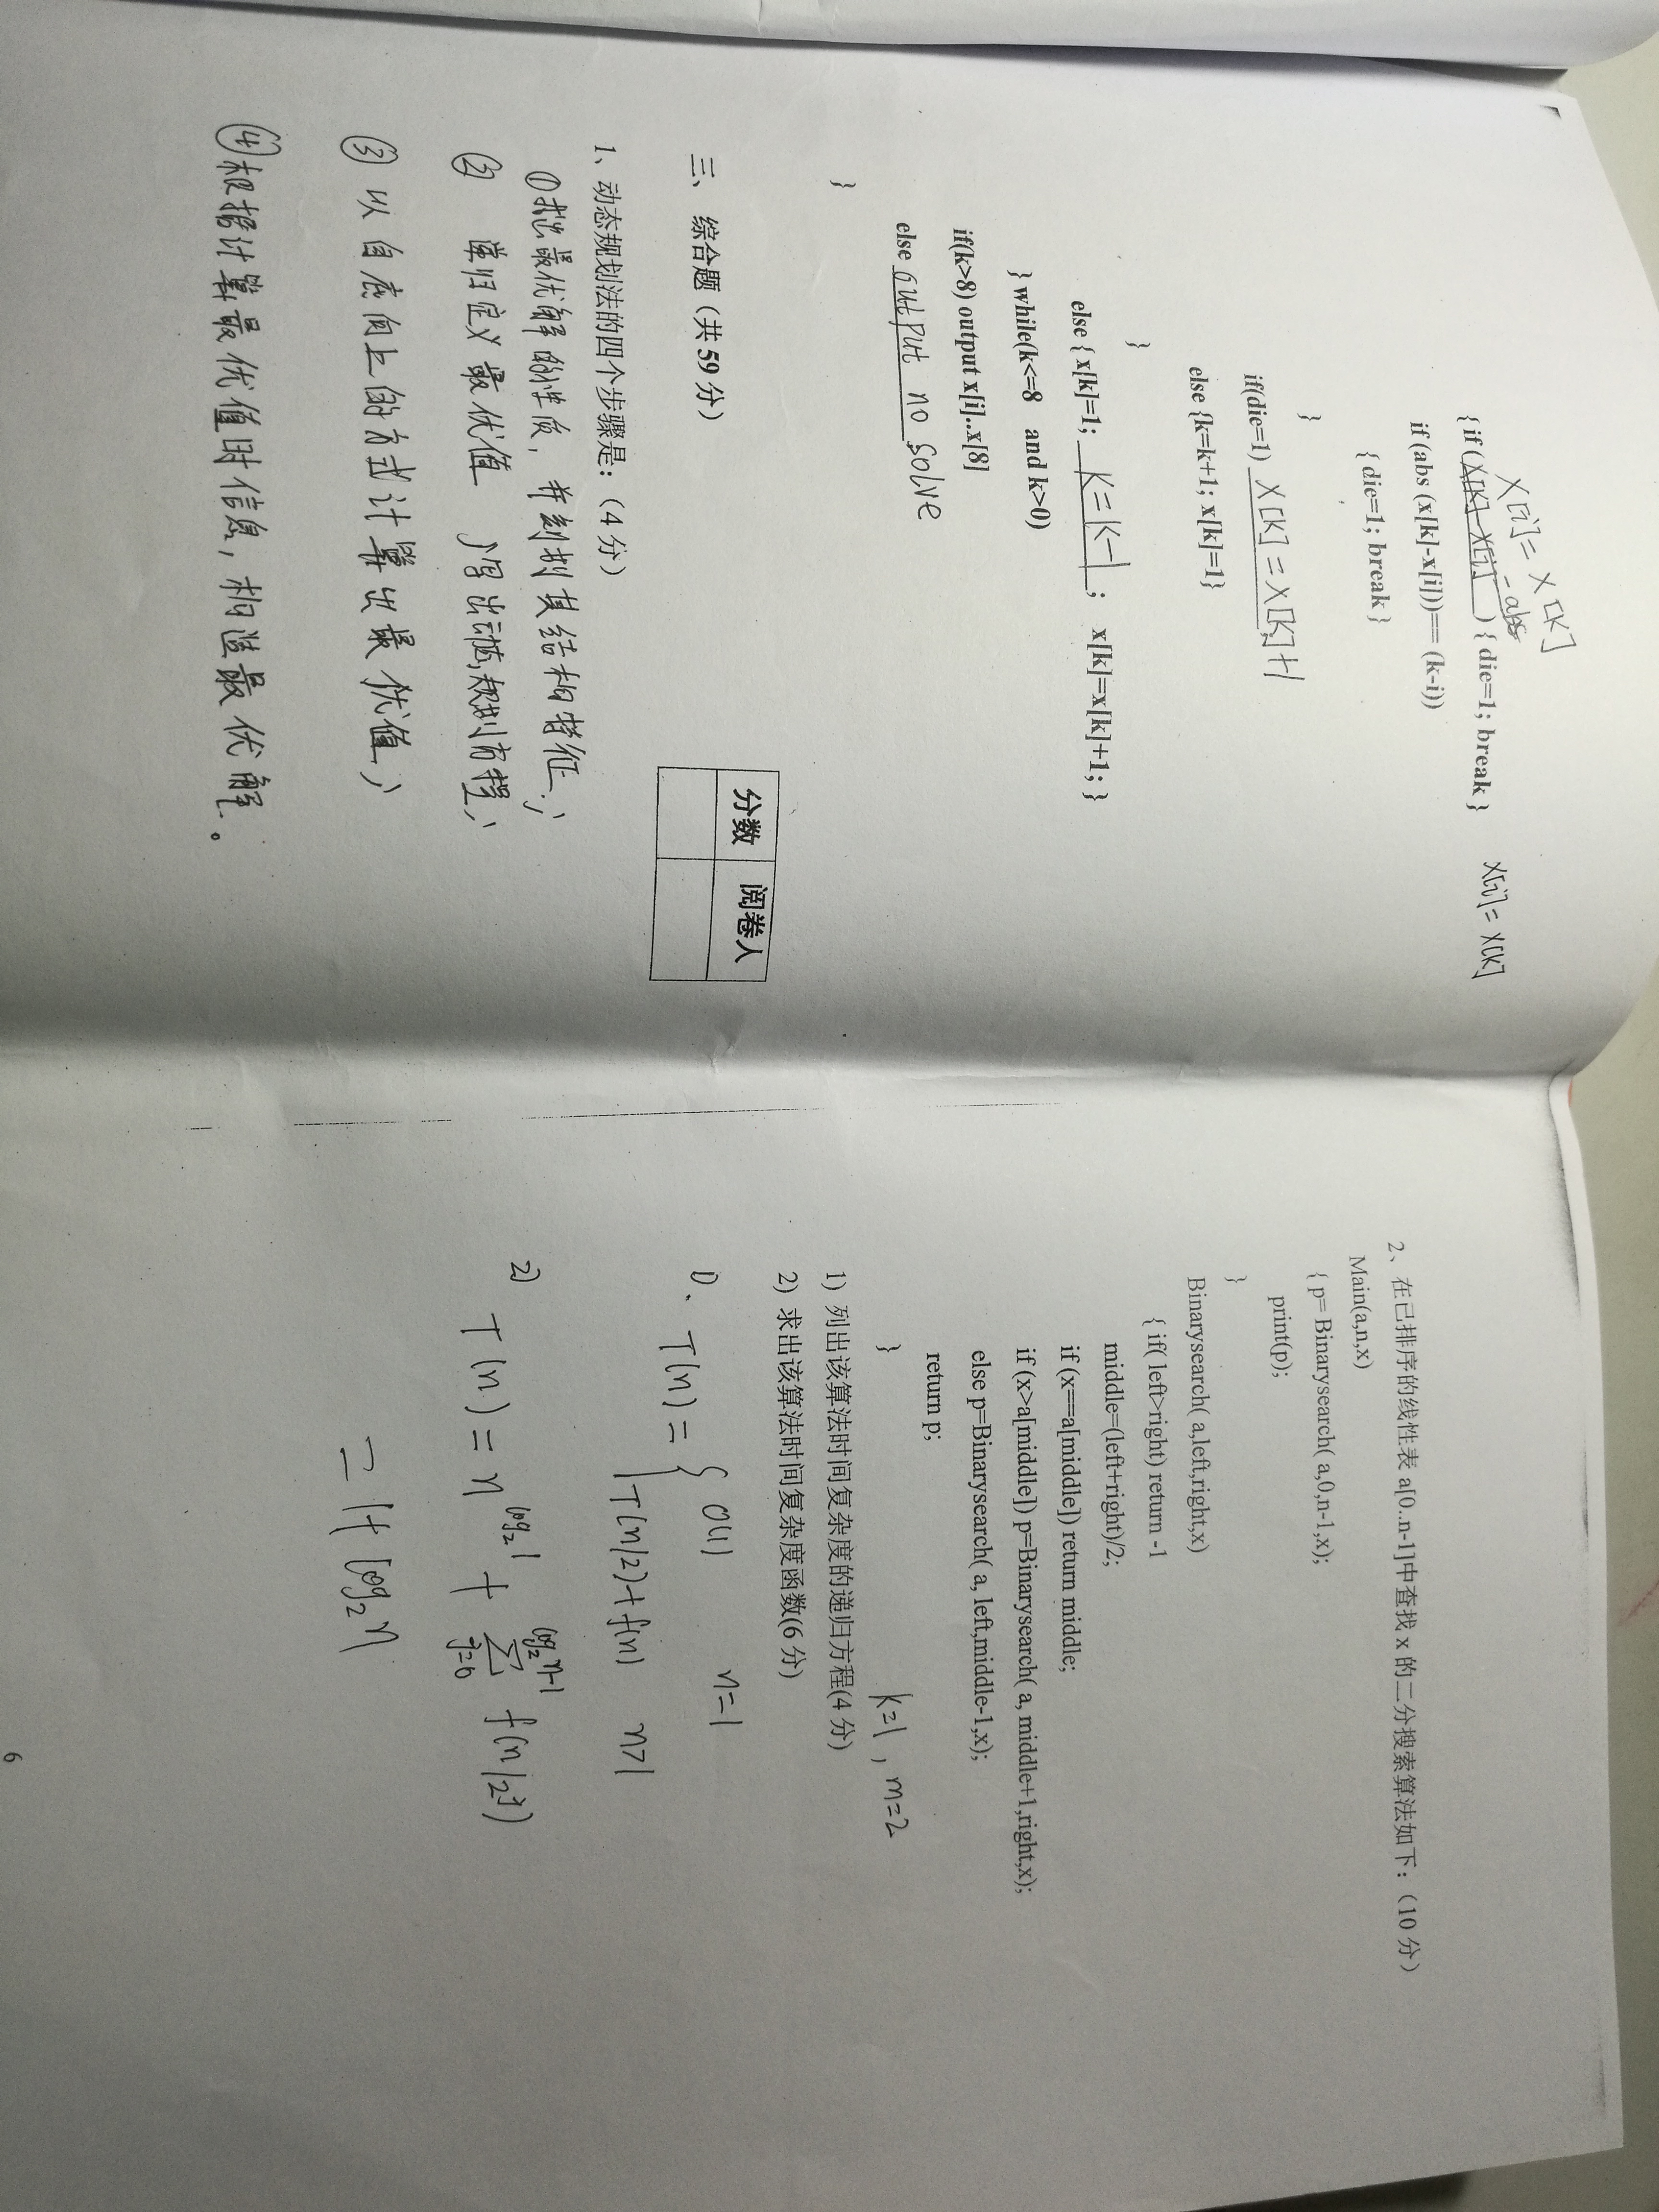 X[i]= X[K]
{ if (X[K]-X[i] - abs ) { die=1; break }
X[i]= X[K]
if (abs (x[k]-x[i]))== (k-i))
{ die=1; break }
}
if(die=1) X[K] = X[K]+1;
else {k=k+1; x[k]=1}
}
else { x[k]=1; K=K-1 ; x[k]=x[k]+1; }
} while(k<=8 and k>0)
if(k>8) output x[i]..x[8]
else output no solve
}
分数 阅卷人
三、 综合题（共 59 分）
1、动态规划法的四个步骤是：（4 分）
①找出最优解的性质，并刻划其结构特征；
② 递归定义最优值，写出动态规划方程；
③ 以自底向上的方式计算出最优值；
④根据计算最优值时信息，构造最优解。
2、在已排序的线性表 a[0..n-1]中查找 x 的二分搜索算法如下：（10 分）
Main(a,n,x)
{ p= Binarysearch( a,0,n-1,x);
print(p);
}
Binarysearch( a,left,right,x)
{ if( left>right) return -1
middle=(left+right)/2;
if (x==a[middle]) return middle;
if (x>a[middle]) p=Binarysearch( a, middle+1,right,x);
else p=Binarysearch( a, left,middle-1,x);
return p;
}
k=1 , m=2
1) 列出该算法时间复杂度的递归方程(4 分)
2) 求出该算法时间复杂度函数(6 分)
1). T(n) = { O(1) n=1
T(n/2)+f(n) n>1
2) T(n) = n^{log_2 1} + ∑_{j=0}^{log_2 n-1} f(n/2^j)
= 1+ log_2 n
6